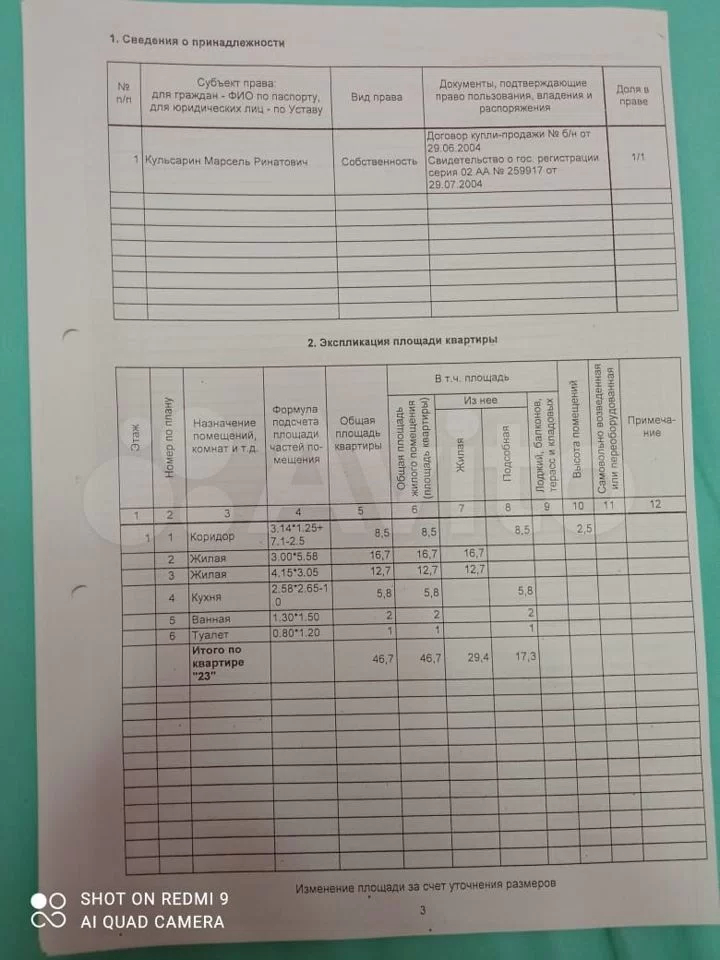 1. Сведения о принадлежности
№
п/п
Субъект права:
для граждан - ФИО по паспорту,
для юридических лиц - по Уставу
Вид права
Документы, подтверждающие
право пользования, владения и
распоряжения
Доля в
праве
1 Кульсарин Марсель Ринатович Собственность
Договор купли-продажи № б/н от
29.06.2004
Свидетельство о гос. регистрации
серия 02 АА № 259917 от
29.07.2004
1/1
2. Экспликация площади квартиры
Этаж
Номер по плану
Назначение
помещений,
комнат и т.д.
Формула
подсчета
площади
частей по-
мещения
Общая
площадь
квартиры
В т.ч. площадь
Общая площадь
жилого помещения
(площадь квартиры)
Из нее
Жилая
Подсобная
Лоджий, балконов,
терасс и кладовых
Высота помещений
Самовольно возведенная
или переоборудованная
Примеча-
ние
1 2 3 4 5 6 7 8 9 10 11 12
1 1 Коридор 3.14*1.25+ 8,5 8,5 8,5 2,5
7.1-2.5
2 Жилая 3.00*5.58 16,7 16,7 16,7
3 Жилая 4.15*3.05 12,7 12,7 12,7
4 Кухня 2.58*2.65-1 5,8 5,8 5,8
0
5 Ванная 1.30*1.50 2 2 2
6 Туалет 0.80*1.20 1 1 1
Итого по
квартире
"23"
46,7 46,7 29,4 17,3
Изменение площади за счет уточнения размеров
3
Avito
SHOT ON REDMI 9
AI QUAD CAMERA